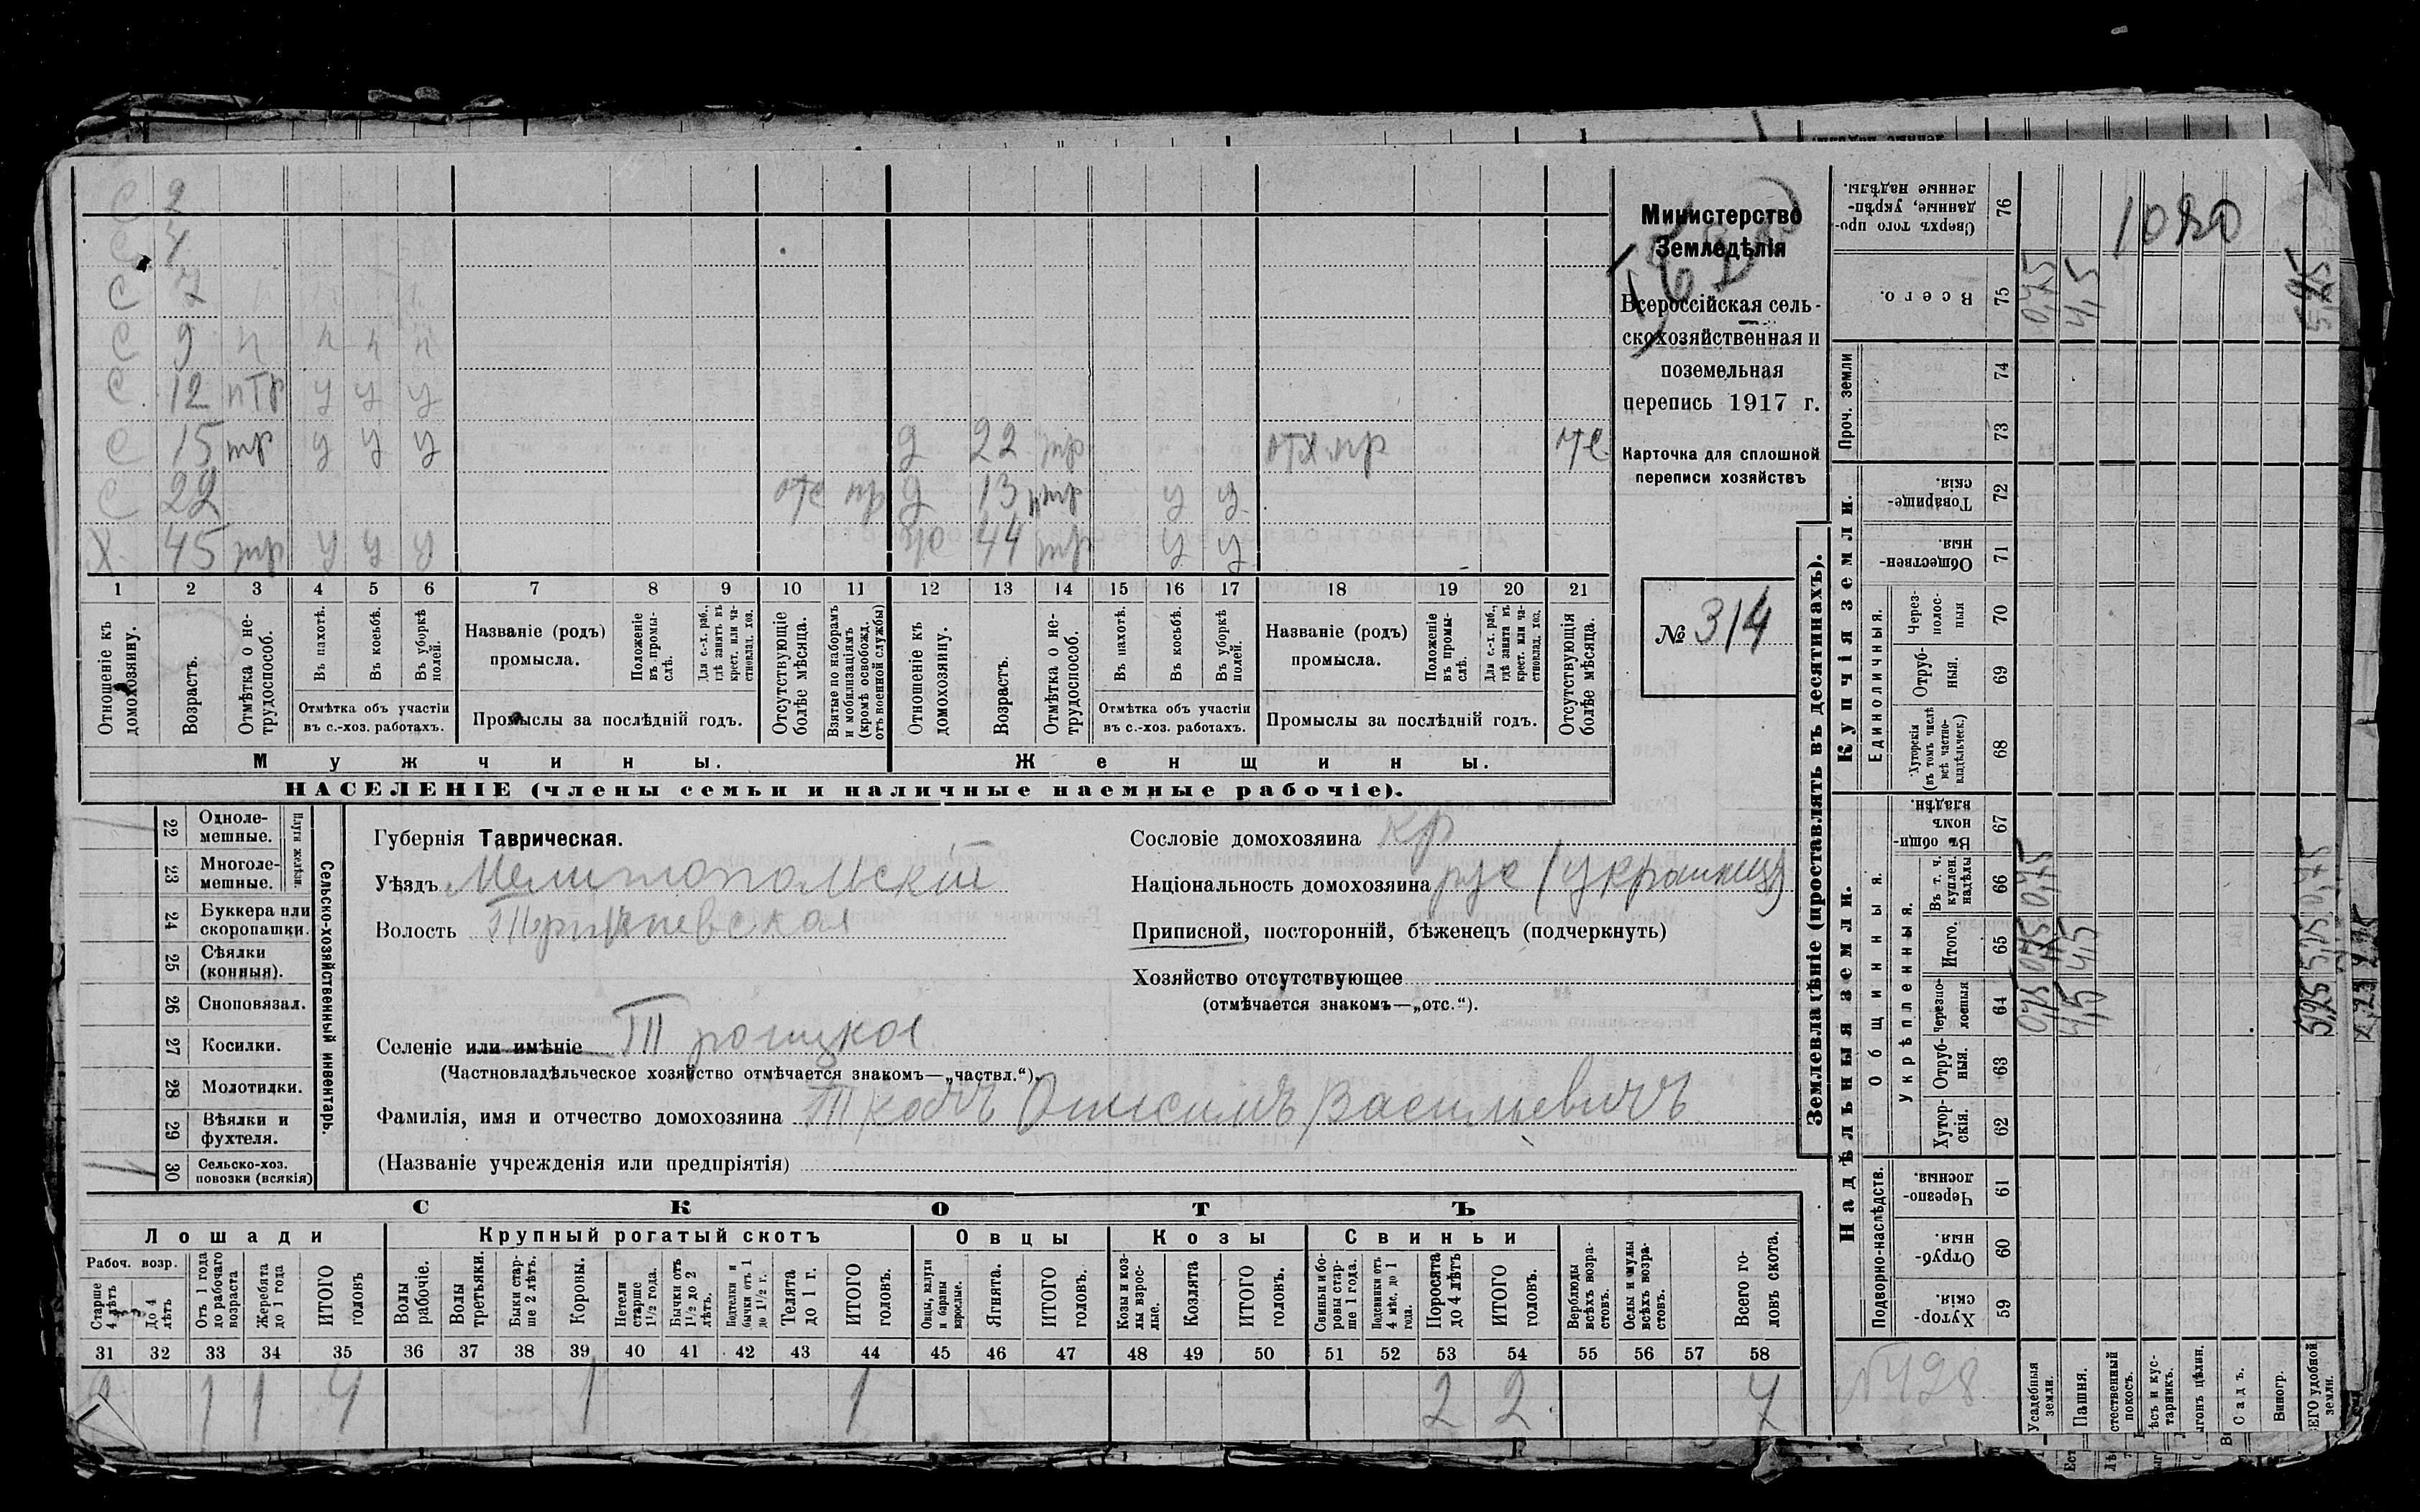 С 2
С 4
С 7
С 9 п п п п
С 12 птр у у у
С 15 тр у у у д 22 тр отх.пр отс
С 22 отс пр д 13 птр у у
Х 45 тр у у у же 44 тр у у
1 2 3 4 5 6 7 8 9 10 11 12 13 14 15 16 17 18 19 20 21
Отношеніе къ домохозяину.
Возрастъ.
Отмѣтка о нетрудоспособ.
Въ пахотѣ.
Въ косьбѣ.
Въ уборкѣ полей.
Отмѣтка объ участіи
въ с.-хоз. работахъ.
Названіе (родъ)
промысла.
Положеніе въ промыслѣ.
Для с.-х. раб., гдѣ занятъ въ крест. или частновлад. хоз.
Промыслы за послѣдній годъ.
Отсутствующіе болѣе мѣсяца.
Взятые по наборамъ и мобилизаціямъ (кромѣ освобожд. отъ военной службы)
Отношеніе къ домохозяину.
Возрастъ.
Отмѣтка о нетрудоспособ.
Въ пахотѣ.
Въ косьбѣ.
Въ уборкѣ полей.
Отмѣтка объ участіи
въ с.-хоз. работахъ.
Названіе (родъ)
промысла.
Положеніе въ промыслѣ.
Для с.-х. раб., гдѣ занята въ крест. или частновлад. хоз.
Промыслы за послѣдній годъ.
Отсутствующія болѣе мѣсяца.
Мужчины.
Женщины.
НАСЕЛЕНІЕ (члены семьи и наличные наемные рабочіе).
Министерство
Земледѣлія
Всероссійская сель-
скохозяйственная и
поземельная
перепись 1917 г.
Карточка для сплошной
переписи хозяйствъ
№ 314
22 Одноле-
мешные.
23 Многоле-
мешные.
Плуги желѣзн.
24 Буккера или
скоропашки.
25 Сѣялки
(конныя).
26 Сноповязал.
27 Косилки.
28 Молотилки.
29 Вѣялки и
фухтеля.
30 Сельско-хоз.
повозки (всякія)
1
Сельско-хозяйственный инвентарь.
Губернія Таврическая.
Уѣздъ Мелитопольскій
Волость
Селеніе или имѣніе Троицкое
(Частновладѣльческое хозяйство отмѣчается знакомъ—„частвл.“).
Фамилія, имя и отчество домохозяина Ткачъ Онисимъ Васильевичъ
(Названіе учрежденія или предпріятія)
Сословіе домохозяина кр
Національность домохозяина рус (украинец)
Приписной, посторонній, бѣженецъ (подчеркнуть)
Хозяйство отсутствующее
(отмѣчается знакомъ—„отс.“).
СКОТЪ
Лошади
Крупный рогатый скотъ
Овцы
Козы
Свиньи
Рабоч. возр.
Старше 4 лѣтъ
До 4 лѣтъ
Отъ 1 года до рабочаго возраста
Жеребята до 1 года
ИТОГО головъ
Волы рабочіе.
Волы третьяки.
Быки старше 2 лѣтъ.
Коровы.
Нетели старше 1½ года.
Бычки отъ 1½ до 2 лѣтъ.
Подтелки и бычки отъ 1 до 1½ г.
Телята до 1 г.
ИТОГО головъ.
Овцы, валухи и бараны взрослые.
Ягнята.
ИТОГО головъ.
Козы и козлы взрослые.
Козлята
ИТОГО головъ.
Свиньи и боровы старше 1 года.
Подсвинки отъ 4 мѣс. до 1 года.
Поросята до 4 лѣтъ
ИТОГО головъ.
Верблюды всѣхъ возрастовъ.
Ослы и мулы всѣхъ возрастовъ.
Всего головъ скота.
31 32 33 34 35 36 37 38 39 40 41 42 43 44 45 46 47 48 49 50 51 52 53 54 55 56 57 58
2 1 1 4 1 1 2 2 7
Землевладѣніе (проставлять въ десятинахъ).
Купчія земли.
Надѣльныя земли.
Сверхъ того проданные, укрѣпленные надѣлы. 76
1080
Всего. 75 0,75 4,5 5,25
Проч. земли 74 73
Товарищескія. 72
Общественныя. 71
Единоличныя.
Черезполосныя 70
Отрубныя. 69
Хуторскія (въ томъ числѣ всѣ частновладѣльческ.) 68
Общинныя.
Укрѣпленныя.
Въ общинномъ владѣн. 67
Въ т. ч. куплен. надѣлы 66 0,75
Итого. 65 0,75 4,5 5,25
Черезполосныя 64 0,75 4,5 5,25
Отрубныя. 63
Хуторскія. 62
Подворно-наслѣдств.
Черезполосныя. 61
Отрубныя. 60
Хуторскія. 59
№ 428
Усадебныя земли.
Пашня.
стественный покосъ.
ѣсъ и кустарникъ.
ыгонъ цѣлин.
Садъ.
Виногр.
ЕГО удобной земли.